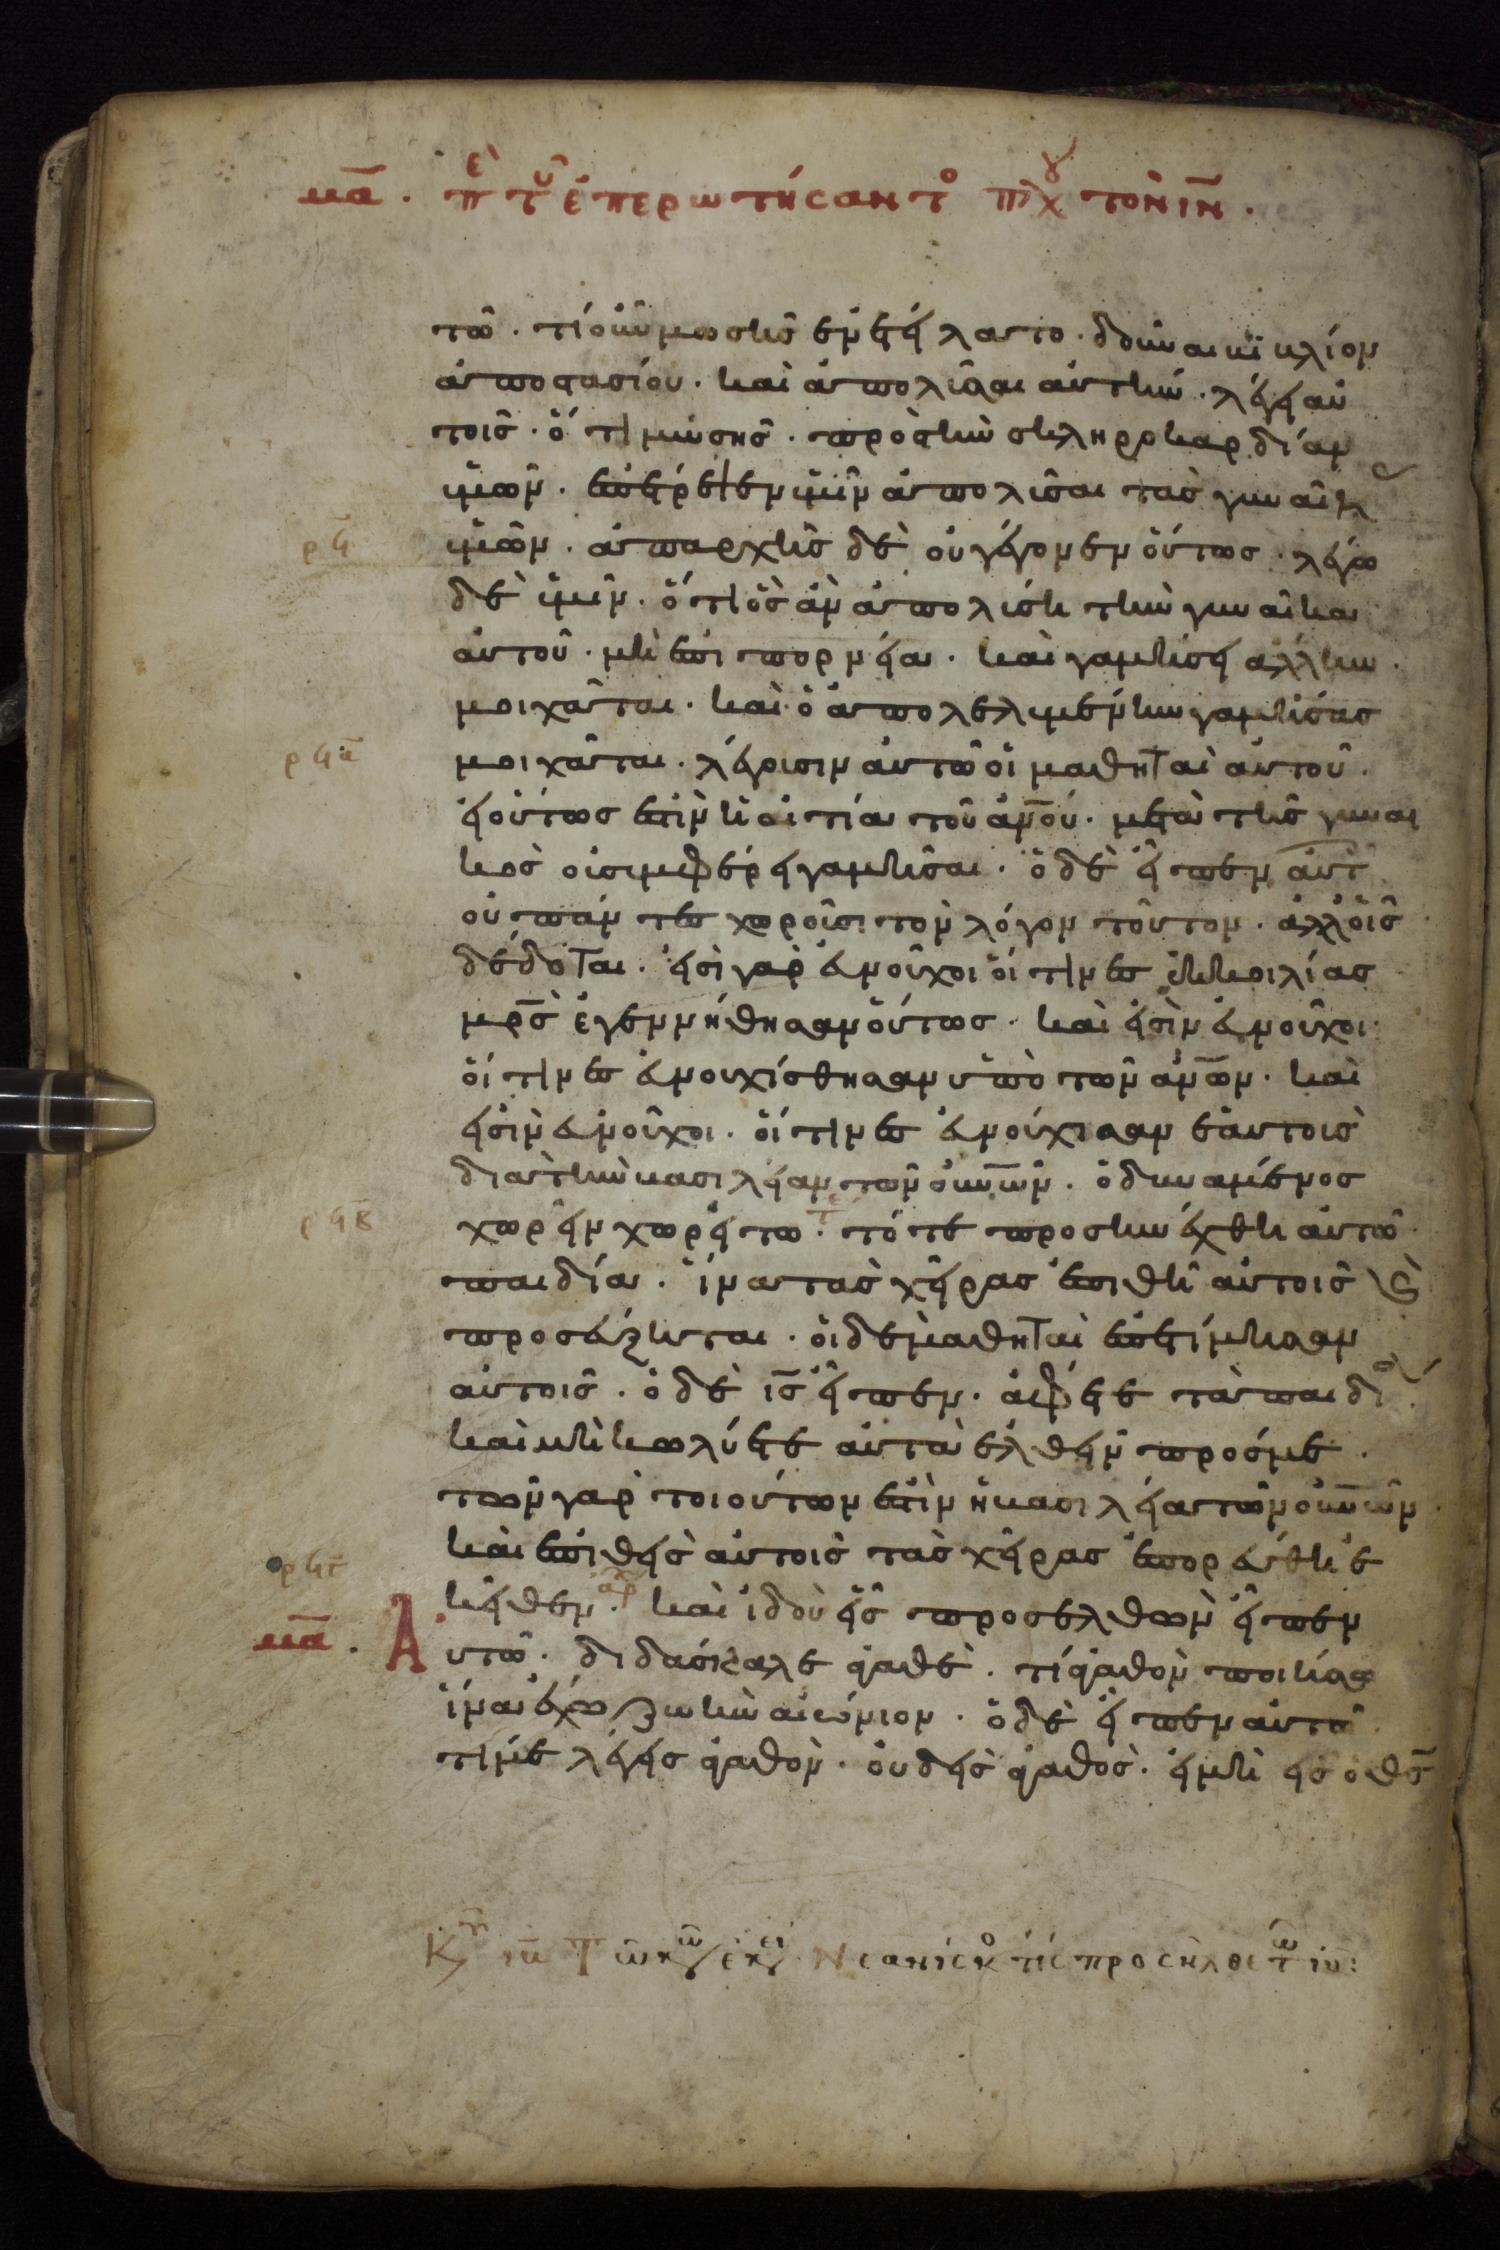 μα. πε του επερωτήσαντο πλου τὸν ιν.
τῶ. τί οὖν μωσῆς ἐνετείλατο. δοῦναι βιβλίον
ἀποστασίου. καὶ ἀπολῦσαι αὐτήν. λέγει αὐ
τοῖς. ὅτι μωσῆς. πρὸς τὴν σκληροκαρδίαν
ὑμῶν. ἐπέτρεψεν ὑμῖν ἀπολῦσαι τὰς γυναῖκας
ρϟ
ὑμῶν. ἀπαρχῆς δὲ οὐ γέγονεν οὕτως. λέγω
δὲ ὑμῖν. ὅτι ὃς ἂν ἀπολύσῃ τὴν γυναῖκα
αὐτοῦ. μὴ ἐπι πορνεία. καὶ γαμήσει ἄλλην.
μοιχᾶται. καὶ ὁ ἀπολελυμένην γαμήσας
ρϟα
μοιχᾶται. λέγουσιν αὐτῶ οἱ μαθηταὶ αὐτοῦ.
εἰ οὕτως ἐστὶν ἡ αἰτία τοῦ ανου. μετὰ τῆς γυναι
κὸς οὐ συμφέρει γαμῆσαι. ὁ δὲ εἶπεν αὐτοῖς
οὐ πάντες χωροῦσι τὸν λόγον τοῦτον. ἀλλοῖς
δέδοται. εἰσὶ γὰρ εὐνοῦχοι οἵτινες ἐκ κοιλίας
μρς ἐγεννήθησαν οὕτως. καὶ εἰσὶν εὐνοῦχοι
οἵτινες εὐνουχίσθησαν ὑπὸ τῶν ανων. καὶ
εἰσὶν εὐνοῦχοι. οἵτινες εὐνούχισαν ἑαυτοὺς
διὰ τὴν βασιλείαν τῶν ουνων. ὁ δυνάμενος
ρϟβ
χωρεῖν χωρείτω. τότε προσηνέχθη αὐτῶ
παιδία. ἵνα τὰς χεῖρας ἐπιθῆ αὐτοῖς καὶ
προσεύξηται. οἱ δὲ μαθηταὶ ἐπετίμησαν
αὐτοῖς. ὁ δὲ ις εἶπεν. ἄφετε τὰ παιδία
καὶ μὴ κωλύετε αὐτὰ ἐλθεῖν πρός με.
τῶν γὰρ τοιούτων ἐστὶν ἡ βασιλεία τῶν ουνων
καὶ ἐπιθεὶς αὐτοῖς τὰς χεῖρας ἐπορεύθη ἐ
ρϟγ
κεῖθεν. αρχ καὶ ἰδοὺ εἷς προσελθὼν εἶπεν
μα. Αυτῶ. διδάσκαλε ἀγαθὲ. τί ἀγαθὸν ποιήσω
ἵνα ἔχω ζωὴν αἰώνιον. ὁ δὲ εἶπεν αὐτῶ
τί με λέγεις ἀγαθὸν. οὐδεὶς ἀγαθὸς. εἰ μὴ εἷς ὁ θς
Κυ ιβ Τῶ κω ἐκει Νεανίσκο τις προσῆλθε τω ιυ: